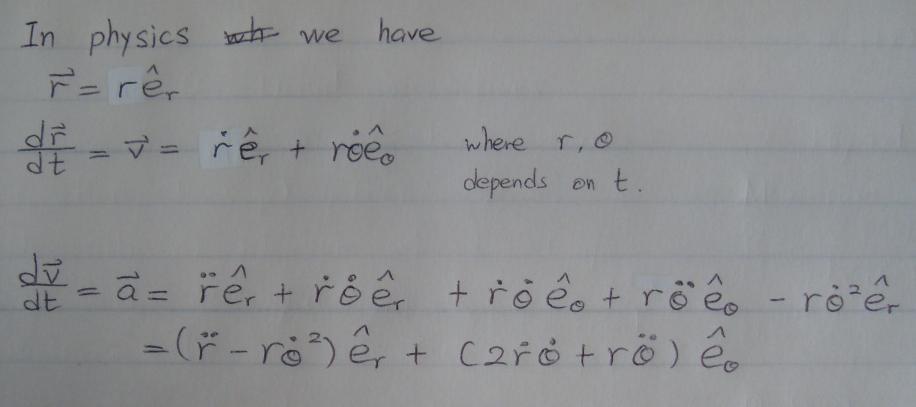 In physics we have
r⃗ = r ê_r
dr⃗/dt = v⃗ = ṙ ê_r + r θ̇ ê_θ where r, θ
depends on t.
dv⃗/dt = a⃗ = r̈ ê_r + ṙ θ̇ ê_r + ṙ θ̇ ê_θ + r θ̈ ê_θ - r θ̇² ê_r
= (r̈ - r θ̇²) ê_r + (2 ṙ θ̇ + r θ̈) ê_θ